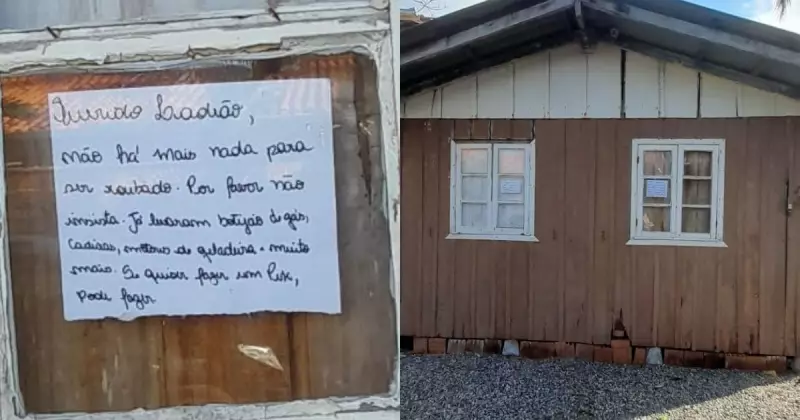 Querido Ladrão,
não há mais nada para
ser roubado. Por favor não
insista. Já levaram botijão de gás,
Cadeiras, motor de geladeira e muito
mais. Se quiser fazer um Pix,
Pode fazer